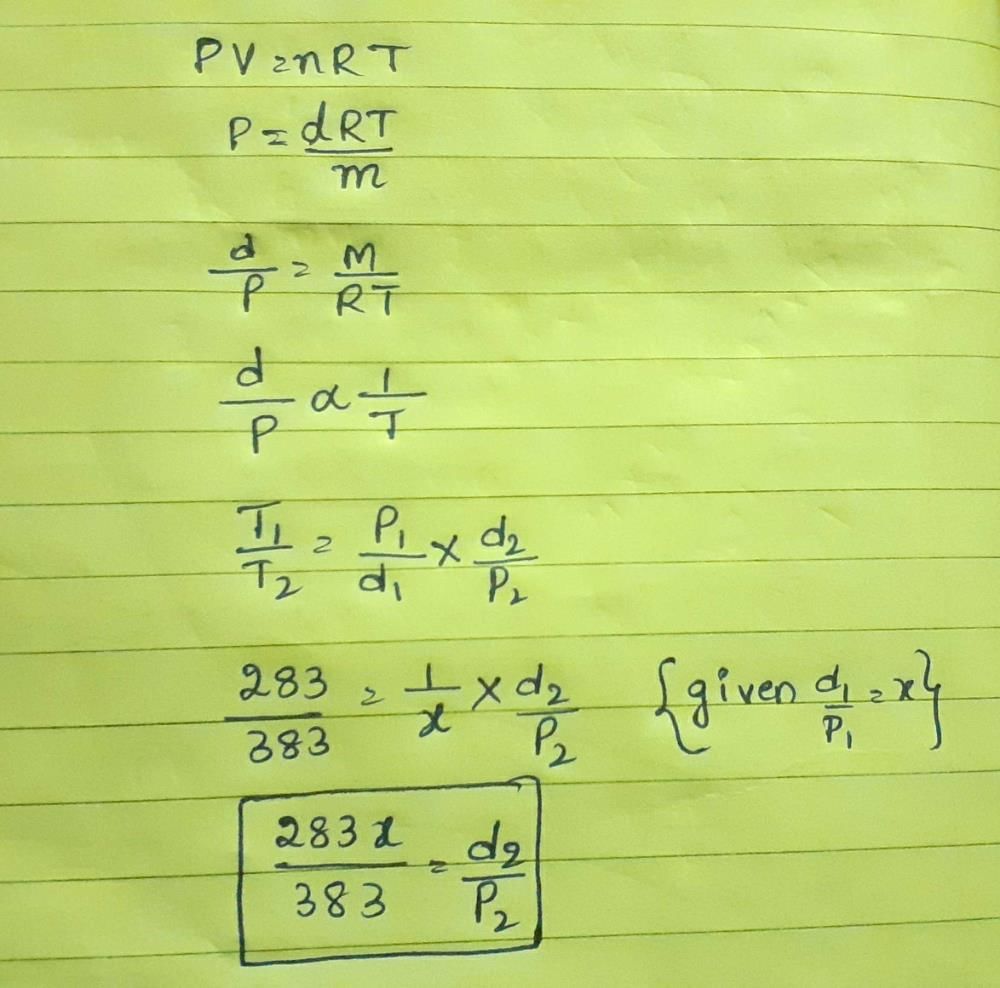 PV = nRT
P = dRT/m
d/P = M/RT
d/P α 1/T
T₁/T₂ = P₁/d₁ × d₂/P₂
283/383 = 1/x × d₂/P₂ {given d₁/P₁ = x}
283x/383 = d₂/P₂